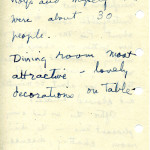 boys and
were about 30
people.
Dining room most
attractive - lovely
decorations on table-